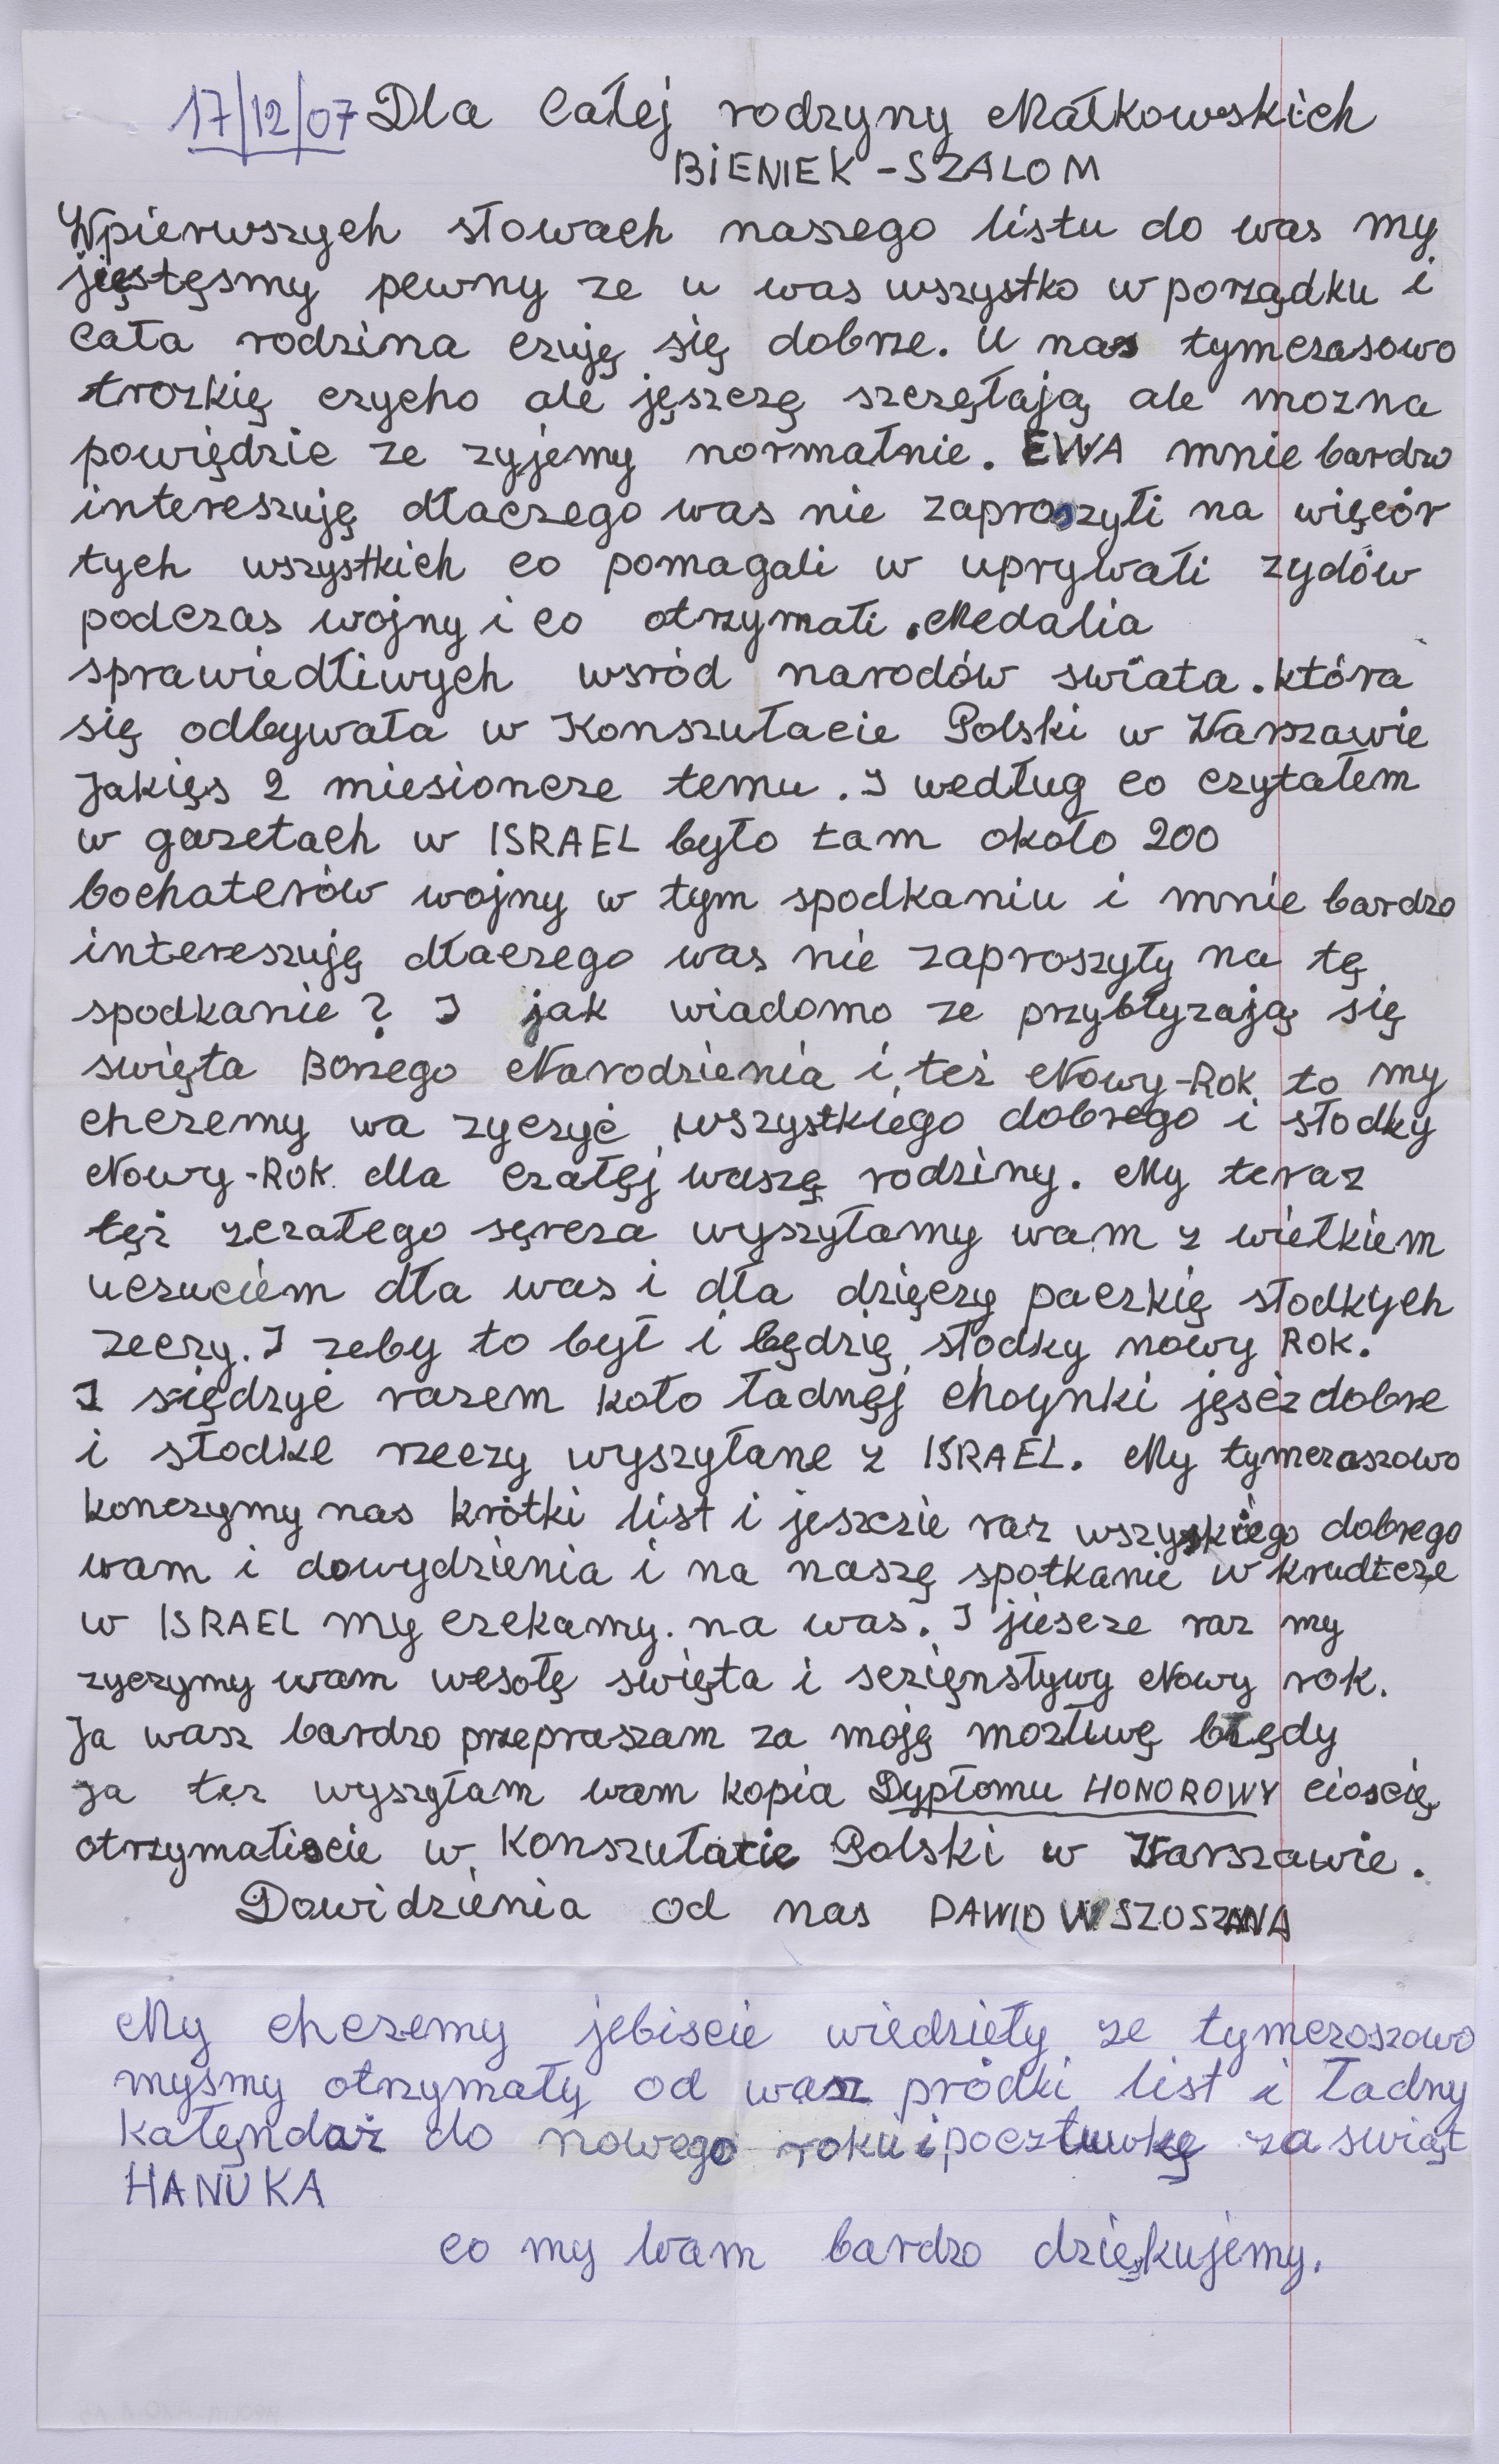 17/12/07 Dla Całej rodzyny Małkowskich
BiENIEK - SZALOM
Wpierwszych słowach naszego listu do was my
jięstęsmy pewny ze u was wszystko w porządku i
Cała rodzina czuję się dobrze. U nas tymczasowo
trozkię czycho ale jęszczę szczęłają ale mozna
powiędzie ze zyjemy normałnie. EWA mnie bardzo
intereszuję dłaczego was nie zaproszyłi na więcór
tych wszystkich co pomagali w uprywałi zydów
podczas wojny i co otrzymałi. Medalia
sprawiedłiwych wsród narodów swiata. która
się odbywała w Konszułacie Polski w Warszawie
Jakięs 2 miesioncze temu. I według co czytałem
w gazetach w ISRAEL było tam około 200
bochaterów wojny w tym spodkaniu i mnie bardzo
intereszuję dłaczego was nie zaproszyły na tę
spodkanie? I jak wiadomo ze przybłyzają się
swięta Bożego Narodzienia i też Nowy-Rok to my
chczemy wa zyczyć wszystkiego dobrego i słodky
Nowy-Rok dla czałęj waszę rodziny. My teraz
tęż zczałego sęrcza wyszyłamy wam z wiełkiem
uczuciem dła was i dła dzięczy paczkię słodkych
zeczy. I zeby to był i będzię słodky nowy Rok.
I siędzyć razem koło ładnęj choynki jęsćz dobre
i słodke rzeczy wyszyłane z ISRAEL. My tymczaszowo
konczymy nas krótki list i jeszczie raz wszyskiego dobrego
wam i dowydzienia i na naszę spotkanie w krudtcze
w ISRAEL my czekamy. na was. I jiescze raz my
zyczymy wam wesołę swięta i sczięnstywy Nowy rok.
Ja wasz bardzo przepraszam za moję mozłiwę błędy
ja tez wyszyłam wam kopia Dypłomu HONOROWY cioscię
otrzymaliscie w Konszułatie Polski w Warszawie.
Dowidzienia od nas DAWID W SZOSZANA
My chczemy jebiscie wiedzieły ze tymczoszowo
mysmy otrzymały od wasz pródki list i ładny
kałęndaż do nowego roku i pocztuwkę za swiąt
HANUKA
co my wam bardzo dziękujemy.